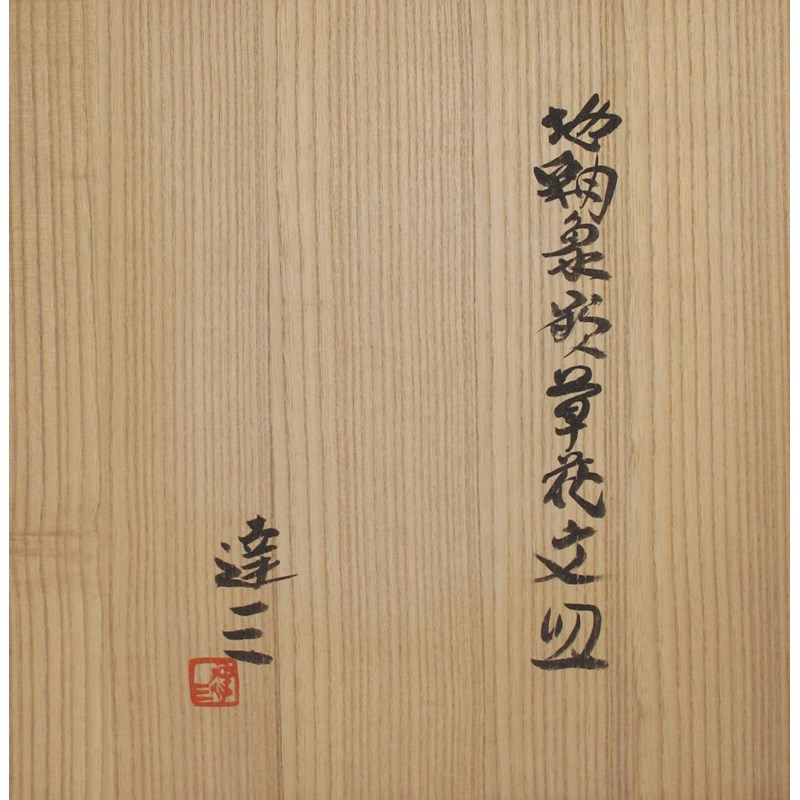 地釉象嵌草花文皿
達三